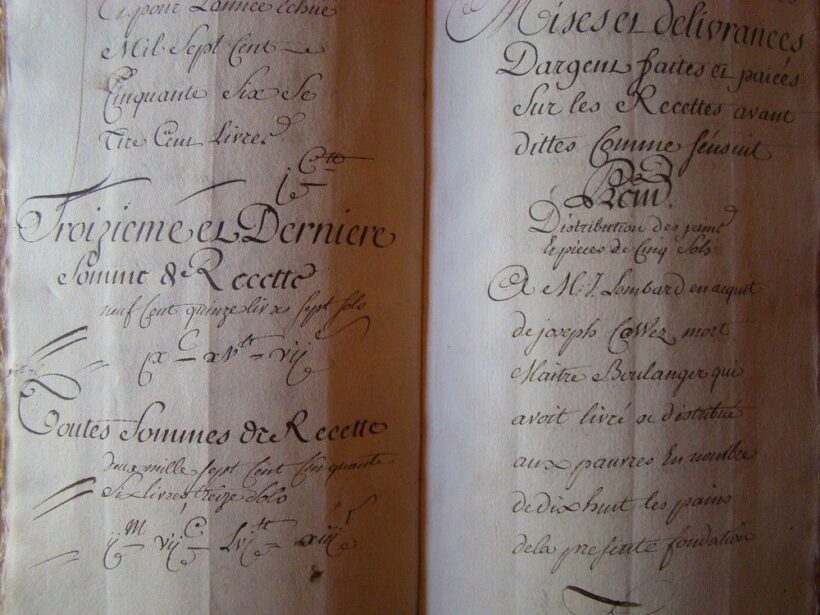 Et pour Lannée Echue
Mil Sept Cent
Cinquante Six Se
Tire Cent Livres
ijᶜ ᵗᵗ
Troizieme et Derniere
Somme de Recette
neuf Cent quinze livres sept sols
ix C xv ᵗᵗ vij ˢ
Toutes Sommes de Recette
deux mille sept Cent Cinquante
Six livres treize Solo
ij M vij C Lvj ᵗᵗ xiij ˢ
Mises et delivrances
Dargent faites et paiées
Sur les Recettes avant
dittes Comme sensuit
Distribution des
et pieces de Cinq Sols
A M. J. Lombard en acquit
de joseph CaWez mort
Maitre Boulanger qui
avoit livré et distribué
aux pauvres En nombre
de dix huit les pains
dela presente fondation